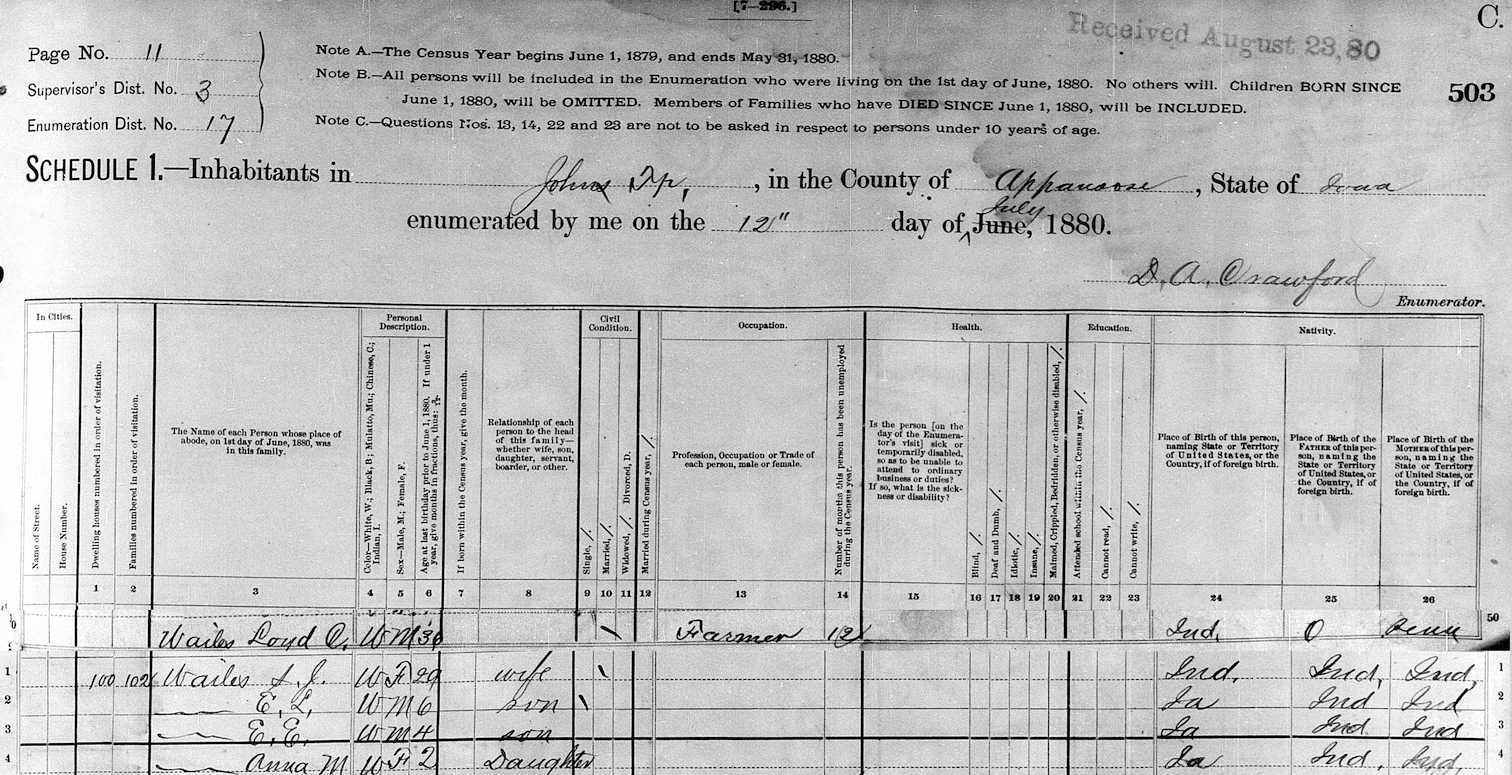 [7-296.]
C.
Received August 23, 80
Page No. 11
Supervisor's Dist. No. 3
Enumeration Dist. No. 17
Note A.—The Census Year begins June 1, 1879, and ends May 31, 1880.
Note B.—All persons will be included in the Enumeration who were living on the 1st day of June, 1880. No others will. Children BORN SINCE
June 1, 1880, will be OMITTED. Members of Families who have DIED SINCE June 1, 1880, will be INCLUDED.
Note C.—Questions Nos. 13, 14, 22 and 23 are not to be asked in respect to persons under 10 years of age.
503
SCHEDULE 1.—Inhabitants in Johns Tp, , in the County of Appanoose , State of Iowa
enumerated by me on the 12" day of June, July 1880.
D. A. Crawford
Enumerator.
In Cities.
Name of Street.
House Number.
Dwelling houses numbered in order of visitation.
Families numbered in order of visitation.
The Name of each Person whose place of
abode, on 1st day of June, 1880, was
in this family.
Personal
Description.
Color—White, W.; Black, B.; Mulatto, Mu.; Chinese, C.;
Indian, I.
Sex—Male, M.; Female, F.
Age at last birthday prior to June 1, 1880. If under 1
year, give months in fractions, thus:
If born within the Census year, give the month.
Relationship of each
person to the head
of this family—
whether wife, son,
daughter, servant,
boarder, or other.
Civil
Condition.
Single, /.
Married, /.
Widowed, /. Divorced, D.
Married during Census year, /.
Occupation.
Profession, Occupation or Trade of
each person, male or female.
Number of months this person has been unemployed
during the Census year.
Health.
Is the person [on the
day of the Enumera-
tor's visit] sick or
temporarily disabled,
so as to be unable to
attend to ordinary
business or duties?
If so, what is the sick-
ness or disability?
Blind, /.
Deaf and Dumb, /.
Idiotic, /.
Insane, /.
Maimed, Crippled, Bedridden, or otherwise disabled, /.
Education.
Attended school within the Census year, /.
Cannot read, /.
Cannot write, /.
Nativity.
Place of Birth of this person,
naming State or Territory
of United States, or the
Country, if of foreign birth.
Place of Birth of the
FATHER of this per-
son, naming the
State or Territory
of United States, or
the Country, if of
foreign birth.
Place of Birth of the
MOTHER of this per-
son, naming the
State or Territory
of United States, or
the Country, if of
foreign birth.
1 2 3 4 5 6 7 8 9 10 11 12 13 14 15 16 17 18 19 20 21 22 23 24 25 26
Wailes Loyd C. W M / Farmer 12 Ind. O Penn 50
1 100 102 Wailes S. J. W F 29 wife / Ind. Ind. Ind. 1
2 — E. L. W M 6 son / Ia Ind Ind 2
3 — E. E. W M 4 son Ia Ind Ind 3
4 — Anna M W F 2 Daughter Ia Ind. Ind. 4